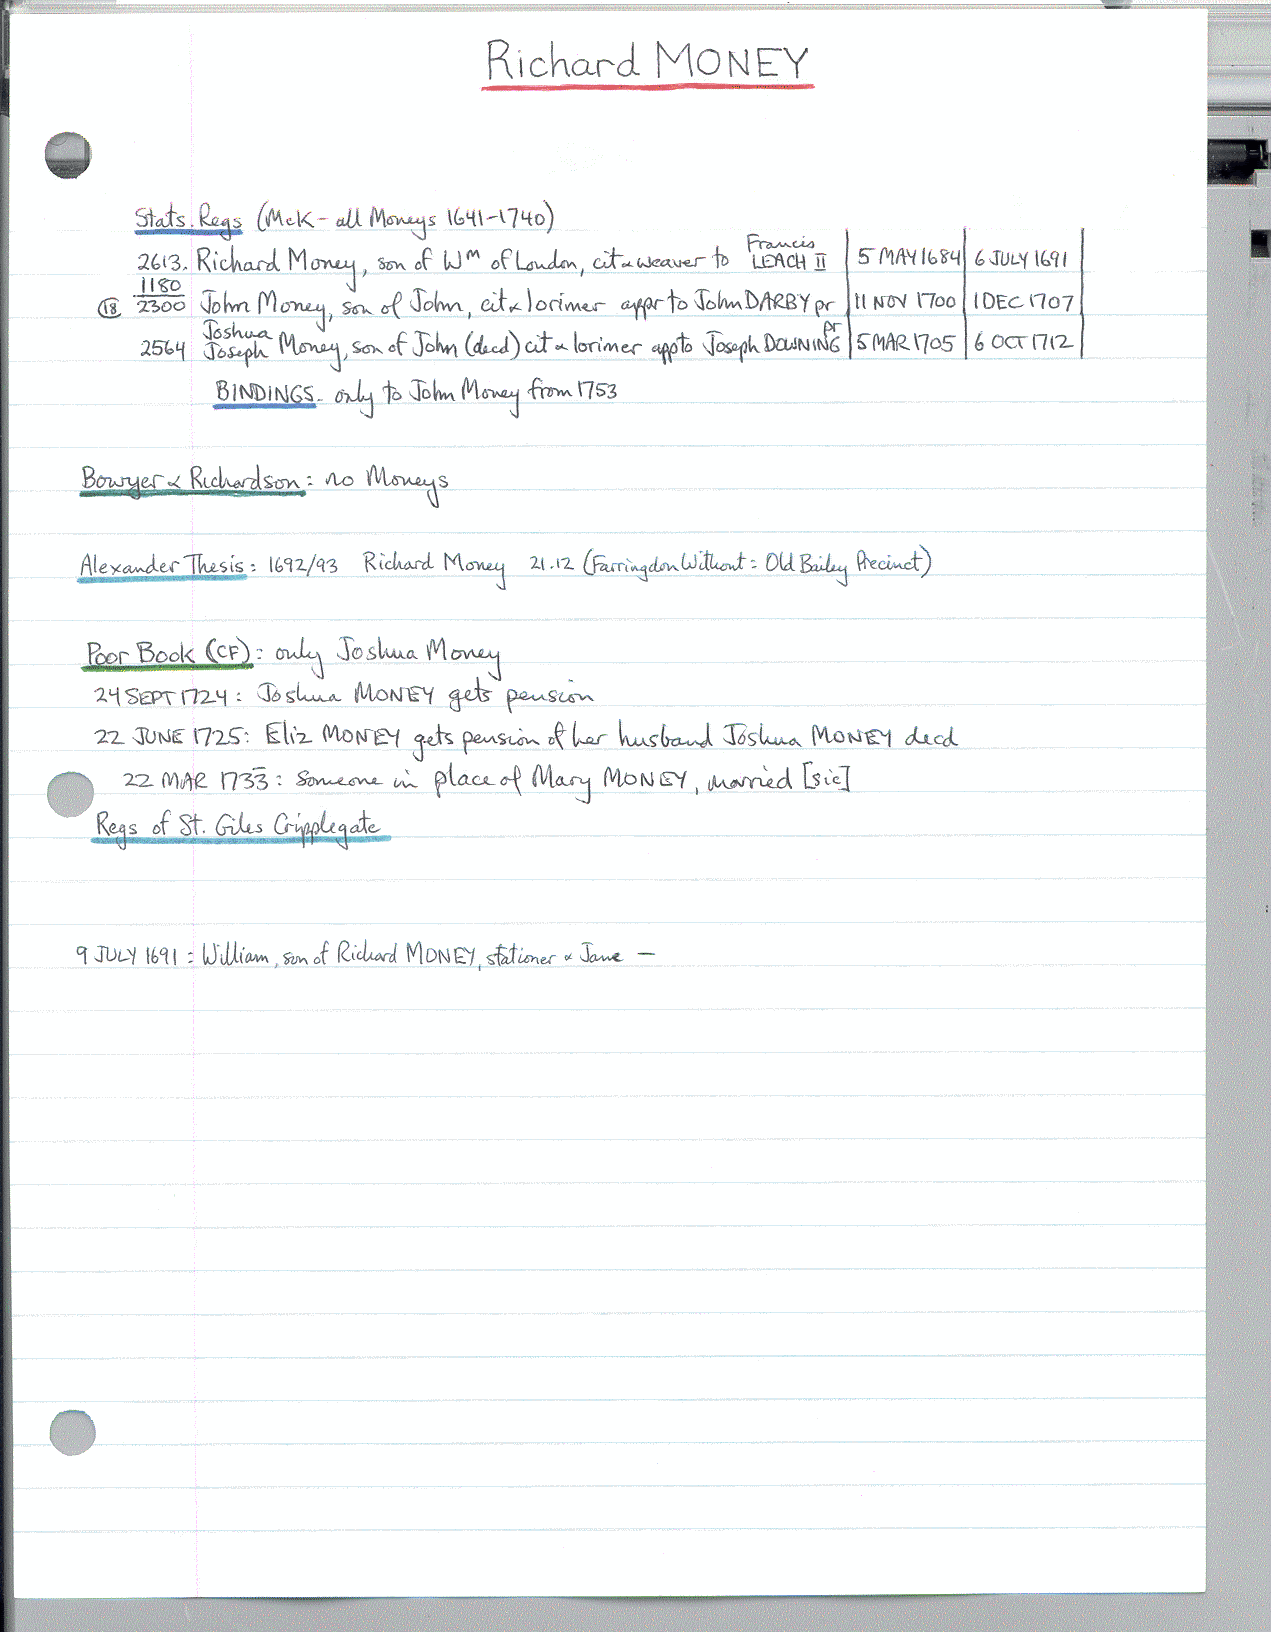 Richard MONEY
Stats. Regs (McK - all Moneys 1641-1740)
2613. Richard Money, son of Wm of London, cit & weaver to Francis LEACH II 5 MAY 1684 6 JULY 1691
1180
18 2300 John Money, son of John, cit & lorimer appr to John DARBY pr 11 NOV 1700 1 DEC 1707
Joshua
2564 Joseph Money, son of John (decd) cit & lorimer app to Joseph DOWNING pr 5 MAR 1705 6 OCT 1712
BINDINGS - only to John Money from 1753
Bowyer & Richardson: no Moneys
Alexander Thesis: 1692/93 Richard Money 21.12 (Farringdon Without: Old Bailey Precinct)
Poor Book (CF): only Joshua Money
24 SEPT 1724: Joshua MONEY gets pension
22 JUNE 1725: Eliz MONEY gets pension of her husband Joshua MONEY decd
22 MAR 1733: Someone in place of Mary MONEY, married [sic]
Regs of St. Giles Cripplegate
9 JULY 1691: William, son of Richard MONEY, stationer & Jane —